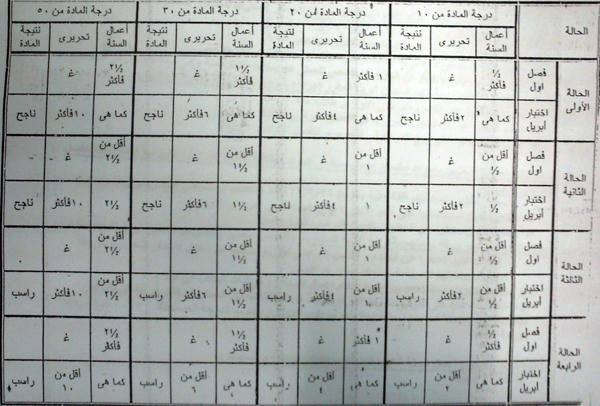 الحالة درجة المادة من ١٠ درجة المادة من ٢٠ درجة المادة من ٣٠ درجة المادة من ٥٠
أعمال السنة تحريرى نتيجة المادة أعمال السنة تحريرى نتيجة المادة أعمال السنة تحريرى نتيجة المادة أعمال السنة تحريرى نتيجة المادة
الحالة الأولى فصل اول ½ فأكثر غ ١ فأكثر غ ١½ فأكثر غ ٢½ فأكثر غ
اختبار أبريل كما هى ٢ فأكثر ناجح كما هى ٤ فأكثر ناجح كما هى ٦ فأكثر ناجح كما هى ١٠ فأكثر ناجح
الحالة الثانية فصل اول أقل من ½ غ أقل من ١ غ أقل من ١½ غ أقل من ٢½ غ
اختبار أبريل ½ ٢ فأكثر ناجح ١ ٤ فأكثر ناجح ١½ ٦ فأكثر ناجح ٢½ ١٠ فأكثر ناجح
الحالة الثالثة فصل اول أقل من ½ غ أقل من ١ غ أقل من ١½ غ أقل من ٢½ غ
اختبار أبريل أقل من ½ ٢ فأكثر راسب أقل من ١ ٤ فأكثر راسب أقل من ١½ ٦ فأكثر راسب أقل من ٢½ ١٠ فأكثر راسب
الحالة الرابعة فصل اول ½ فأكثر غ ١ فأكثر غ ١½ فأكثر غ ٢½ فأكثر غ
اختبار أبريل كما هى أقل من ٢ راسب كما هى أقل من ٤ راسب كما هى أقل من ٦ راسب كما هى أقل من ١٠ راسب